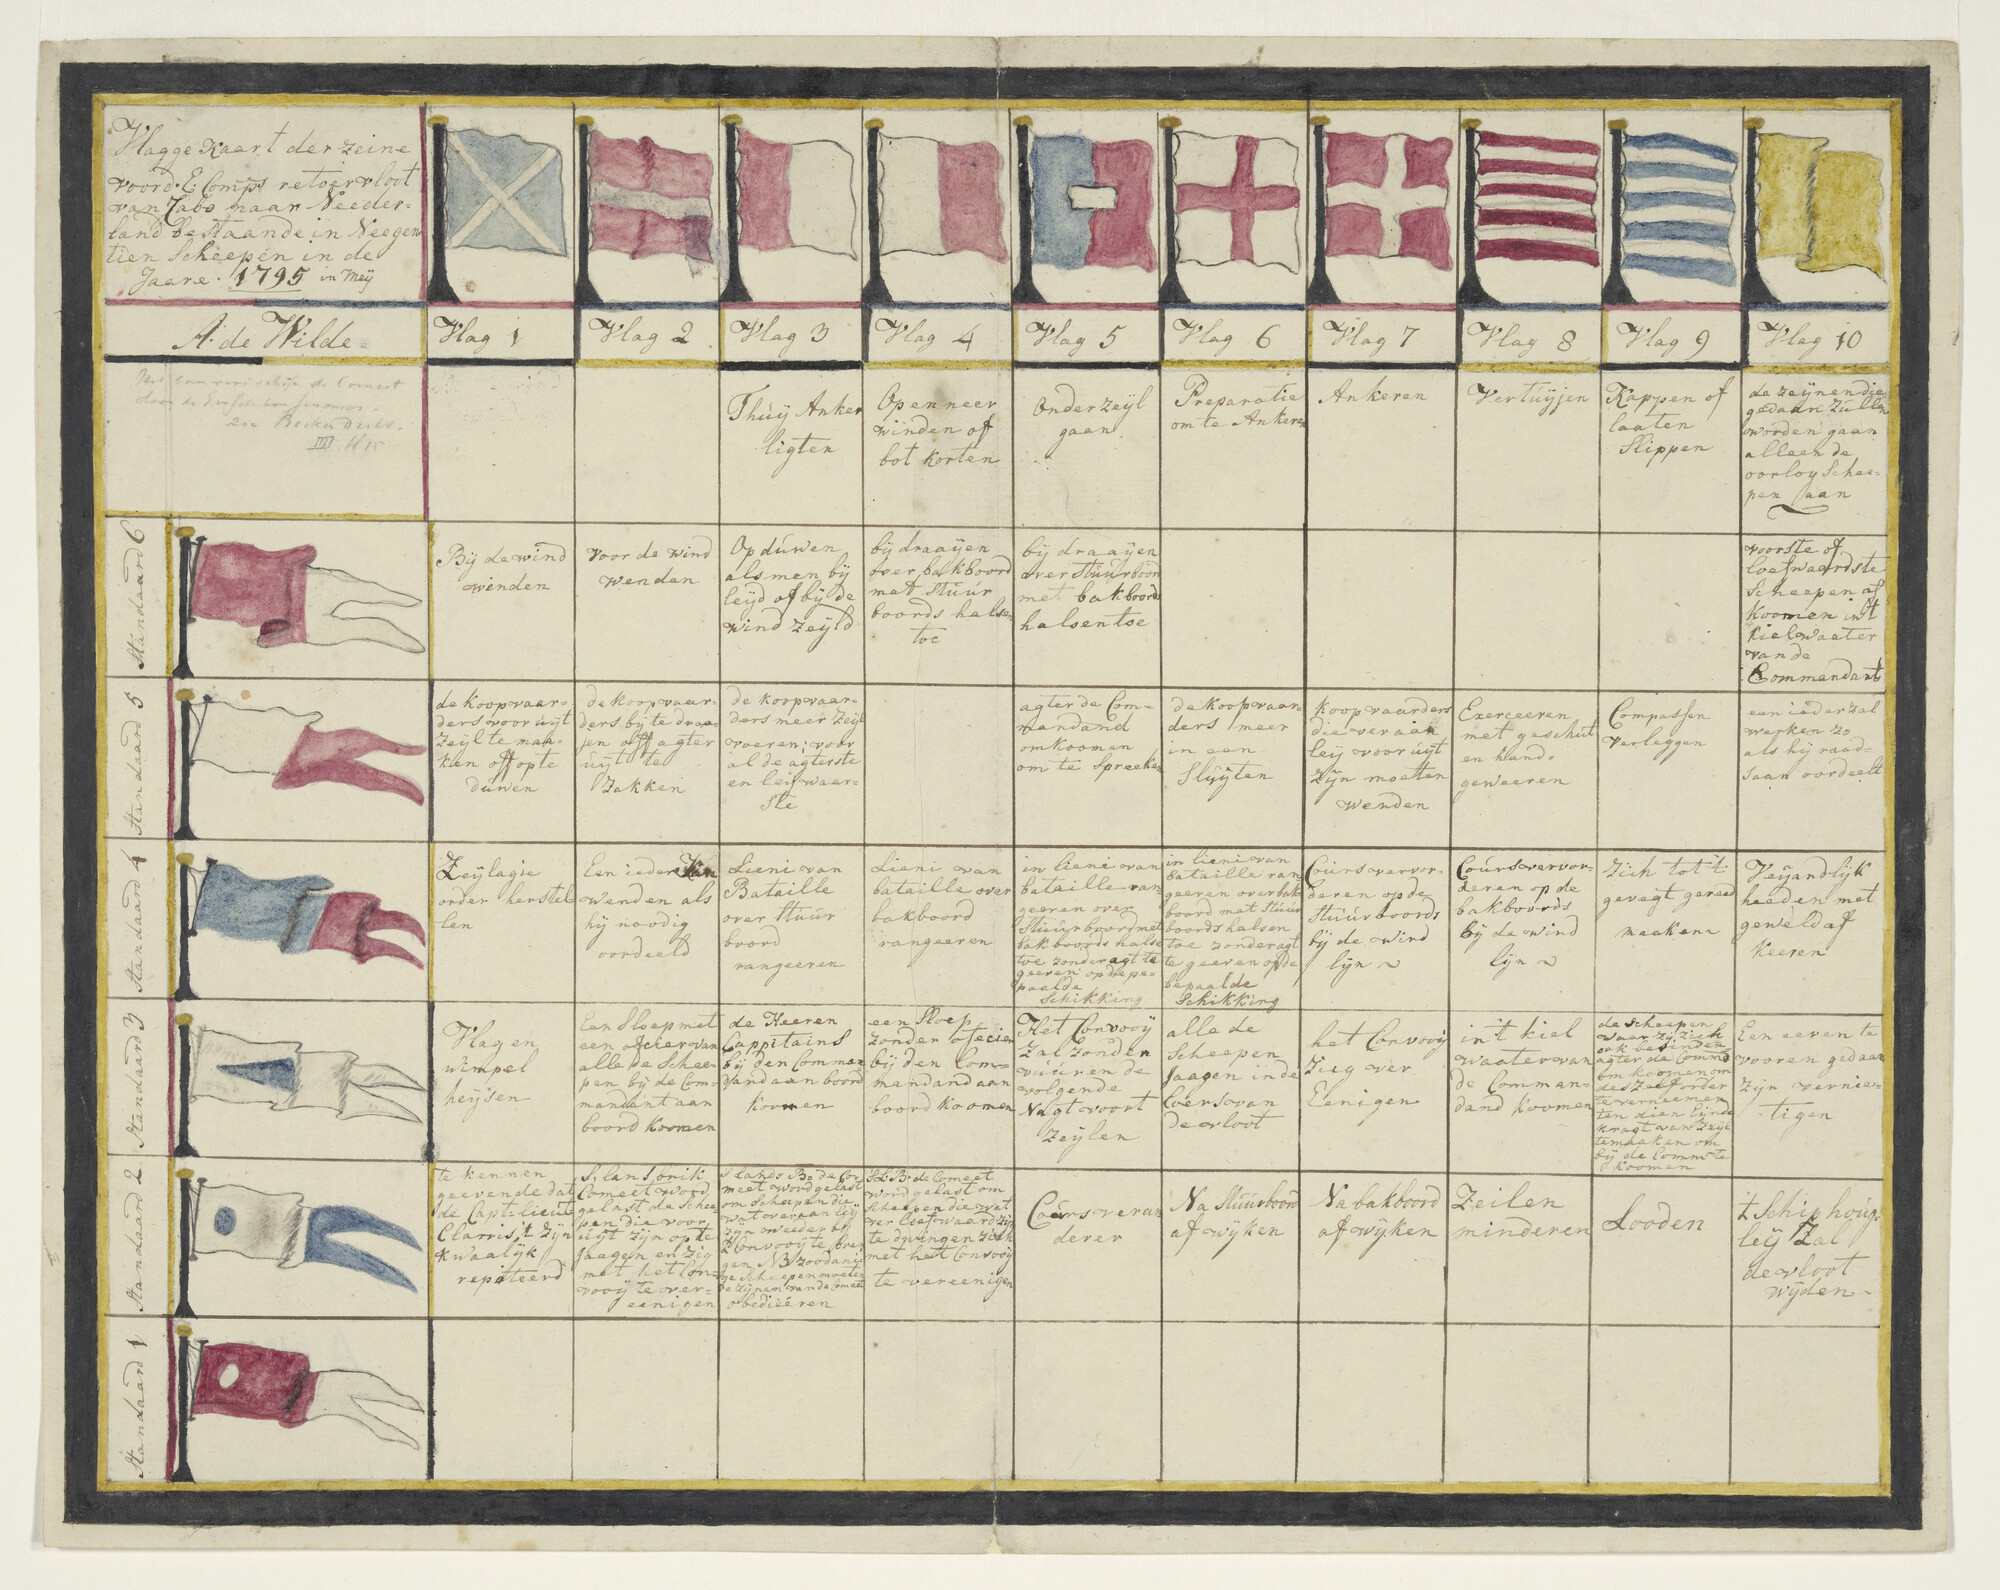 Vlagge Kaart der zeine
voor d. E. Comps retoervloot
van Cabo naar Needer-
land bestaande in Neegen
tien Scheepen in de
Jaare. 1795 in Meÿ
A: de Wilde
Vlag 1
Vlag 2
Vlag 3
Vlag 4
Vlag 5
Vlag 6
Vlag 7
Vlag 8
Vlag 9
Vlag 10
de Comeet
III
Thuÿ Anker
ligten
Op en neer
winden of
bot korten
Onder zeÿl
gaan
Preparatie
om te Ankeren
Ankeren
Vertuÿjen
Kappen of
laaten
Slippen
de zeÿnen die
gedaan zulln
worden gaan
alleen de
oorlog Schee-
pen aan
Standaard 6
Bÿ de wind
wenden
voor de wind
wenden
Op duwen
als men bÿ
leÿd of bÿ de
wind zeÿld
bÿ draaÿen
over bakboord
met Stuur
boords halsen
toe
bÿ draaÿen
over Stuurboord
met bakboords
halsen toe
voorste of
loefwaardste
Scheepen af
koomen in't
kielwaater
van de
Commandant
Standaard 5
de koopvaar-
ders voor uÿt
zeÿl te maa-
ken off op te
duwen
de koopvaar-
ders bÿ te draa-
jen off agter
uÿt te
zakken
de koopvaar-
ders meer zeÿl
voeren; voor
al de agterste
en leÿwaar-
ste
agter de Com-
mandand
om koomen
om te Spreeken
de koopvaar-
ders meer
in een
Sluÿten
koopvaarders
die ver aan
leÿ voor uÿt
zÿn moeten
wenden
Exerceeren
met geschut
en hand-
geweeren
Compassen
verleggen
een ieder zal
werken zo
als hÿ raad-
saam oordeelt
Standaard 4
Zeÿlagie
order herstel
len
Een ieder kan
wenden als
hÿ noodig
oordeeld
Lieni van
Bataille
over Stuur
boord
rangeeren
Lieni van
bataille over
bakboord
rangeeren
in lieni van
bataille ran-
geeren over
Stuurboord met
bakboords halse
toe zonder agt te
geeven op de be-
paalde
Schikking
in lieni van
bataille ran-
geeren over bak
boord met Stuur
boords halsen
toe zonder agt
te geeven op de
bepaalde
Schikking
Cours vervor-
deren op de
Stuurboords
bÿ de wind
lÿn
Cours vervor-
deren op de
bakboords
bÿ de wind
lÿn
zich tot 't
gevegt gereed
maaken
Veÿandlÿk
heeden met
geweld af
keeren
Standaard 3
Vlag en
wimpel
heÿsen
Een Sloep met
een ofcier van
alle de Schee-
pen bÿ de Com-
mandant aan
boord koomen
de Heeren
Cappitains
bÿ den Comman
dand aan boord
koomen
een Sloep
zonder ofecier
bÿ den Com-
mandand aan
boord koomen
Het Convooÿ
zal zonder
vuuren de
volgende
Nagt voort
zeÿlen
alle de
Scheepen
Jaagen in de
Coers van
de vloot
het Convooÿ
zieg ver
Eenigen
in't kiel
waater van
de Comman-
dand koomen
de Scheepen
waar zÿ zich
ook bevinden
agter de Commd
om koomen om
deszelfs order
te verneemen
ten dien Eijnde
kragt van zeÿl
te maaken om
bÿ de Commte
koomen
Een eeven te
vooren gedaan
zÿn vernie-
tigen
Standaard 2
te kennen
geevende dat
de Capt: lieut
Clarris't zÿn
kwaalÿk
repeteerd
S lands brik
Comeet word
gelast de Schee-
pen die voor
uÿt zÿn op te
Jaagen en zig
met het Con-
vooÿ te ver-
eenigen
S lands B: de Co-
meet word gelast
om Scheepen die
wat ver aan leÿ
zÿn weeder bÿ
't Convooÿ te bren
gen NB zoodanige
Scheepen moeten
de zÿnen van de Comeet
obedieeren
S:L:B: de Comeet
word gelast om
Scheepen die wat
ver loefwaard zÿn
te dwingen zich
met het Convooÿ
te vereenigen
Cours veran
deren
Na Stuurboord
afwÿken
Na bakboord
afwÿken
Zeilen
minderen
Looden
't Schip houp
leÿ zal
de vloot
wÿden
Standaard 1